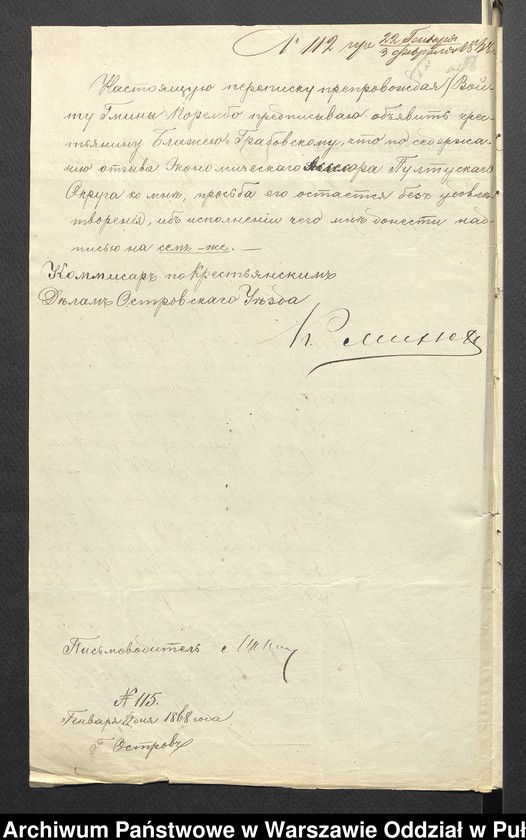 № 112 22 Генваря
3 Февраля 1868
Настоящую переписку препровождая Вой-
ту Гмины Порембо предписываю объявить крес-
тьянину Блажею Грабовскому, что по содержа-
нію отзыва Экономическаго Ассесора Пултускаго
Округа ко мнѣ, просьба его остается безъ удовле-
творенія, объ исполненіи чего мнѣ донести над-
писью на семъ-же. —
Коммисаръ по Крестьянскимъ
Дѣламъ Островскаго Уѣзда
Письмоводитель
№ 115.
Генваря 22 дня 1868 года
Г. Островъ
Archiwum Państwowe w Warszawie Oddział w Puł